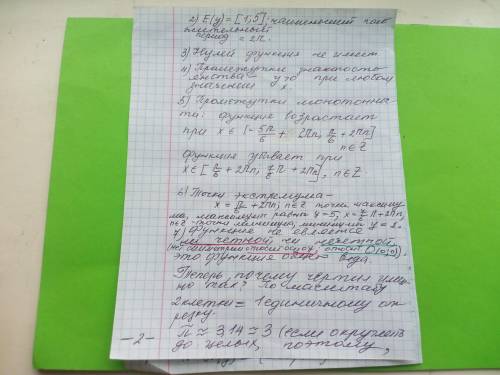 2) E(y) = [1;5]; наименьший поло
жительный
период = 2π.
3) Нулей функция не имеет
4) Промежутки знакопосто
янства – y>0 при любом
значении x.
5) Промежутки монотоннос-
ти: функция возрастает
при x ∈ [-5π/6 + 2πn, π/6 + 2πn]
n∈Z
функция убывает при
x ∈ [π/6 + 2πn, 7π/6 + 2πn], n∈Z
6) Точки экстремума –
x = π/6 + 2πn, n∈Z точки максиму
ма, максимум равен y=5, x = 7/6 π + 2πn,
n∈Z точки минимума, минимум y=1.
7) Функция не является
ни четной ни нечетной
(нет симметрии относит. оси OY, относит. O(0;0))
это функция общего вида.
Теперь, почему чертил имен
но так? По масштабу
2 клетки = 1 единичному от
резку.
П ≈ 3,14 ≈ 3 (если округлить
до целых, поэтому,
– 2 –